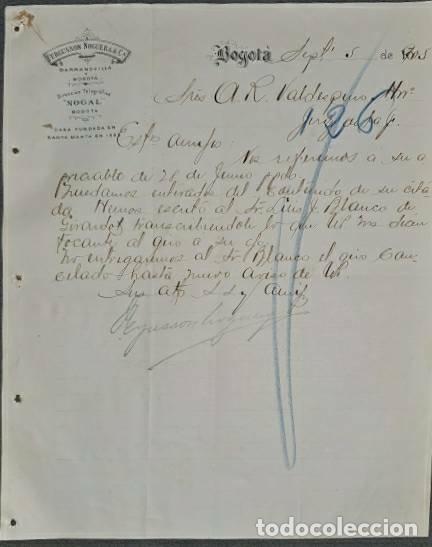 FERGUSSON NOGUERA & Cª
BARRANQUILLA
Y
BOGOTÁ
Dirección Telegráfica
"NOGAL"
BOGOTÁ
CASA FUNDADA EN
SANTA MARTA EN 18
Bogotá Sepbre 5 de 1905
Sres A. R. Valdespino Hno
Jerez
26
Estos amigos:
Nos referimos a su a
preciable de 26 de Junio ppdo.
Quedamos enterados del contenido de su cita
da Hemos escrito al Sr. Blanco de
Girardot transcribiendole lo que Ud nos dicen
tocante al giro a su
No entregaremos al Sr Blanco el giro can
celado hasta nuevo aviso de Ud
Sus S.S. y Amigos
Fergusson Noguera
todocoleccion.net